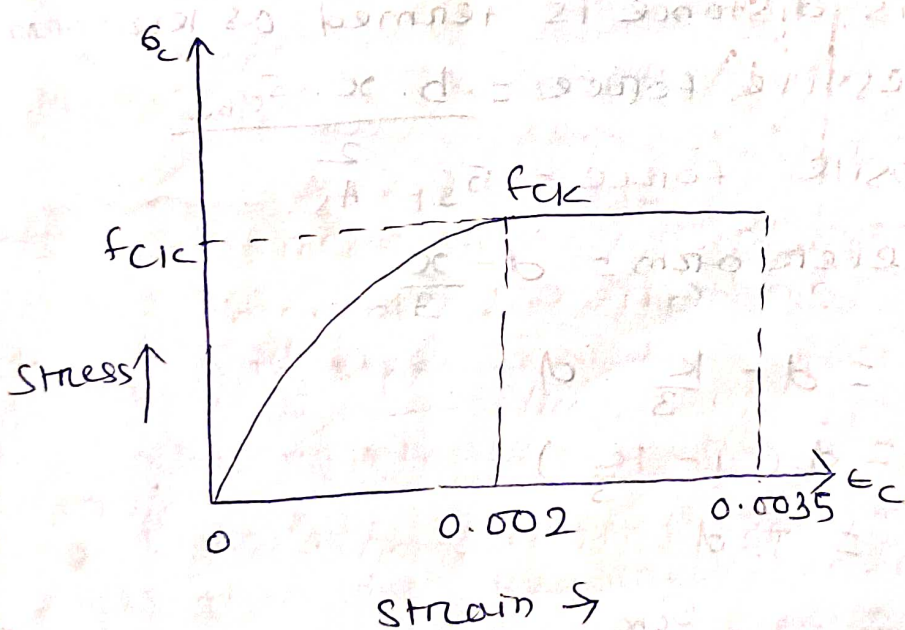 σc
fck
fck
Stress ↑
0
0.002
0.0035
εc
Strain →